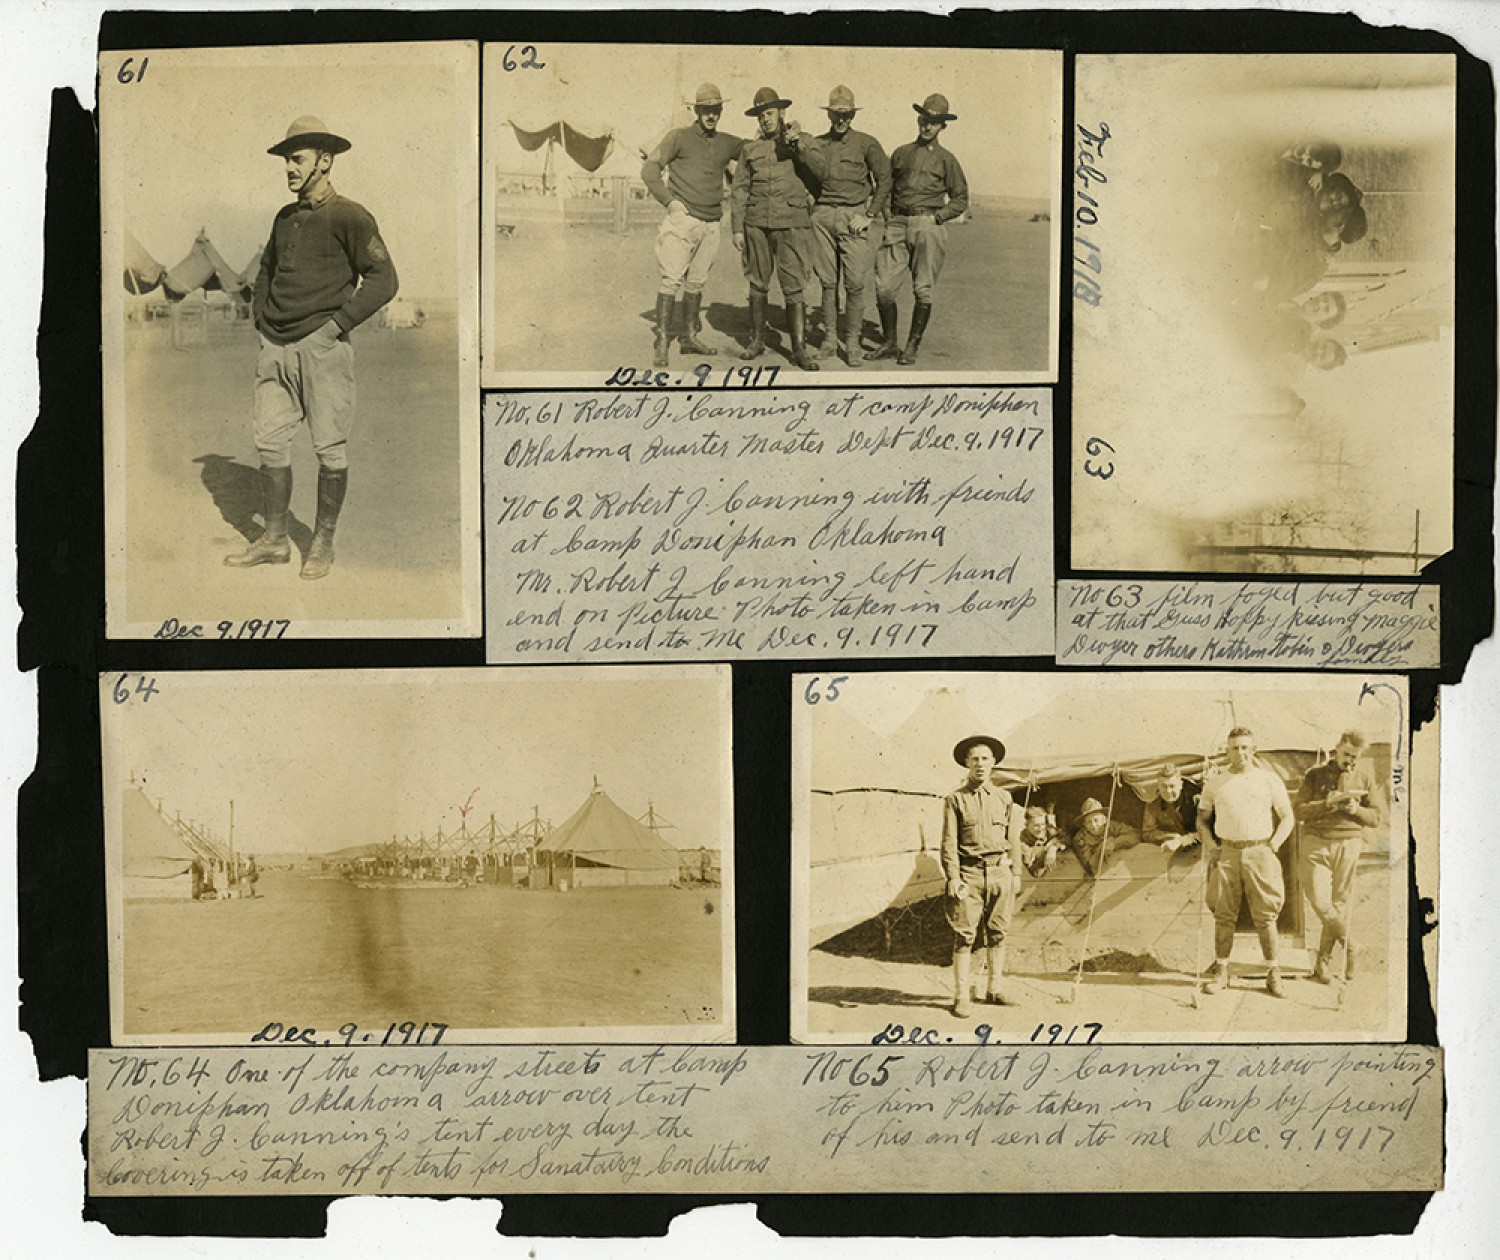 61
Dec 9.1917
62
Dec. 9 1917
No. 61 Robert J. Canning at camp Doniphan
Oklahoma Quarter Master Dept Dec. 9. 1917
No 62 Robert J. Canning with friends
at Camp Doniphan Oklahoma
Mr. Robert J Canning left hand
end on Picture Photo taken in Camp
and send to Me Dec. 9. 1917
Feb 10. 1918
63
No 63 film foged but good
at that Guss Hoppy kissing Maggie
Dwyer others Kathrin Tobin & Dwyers
64
Dec. 9. 1917
No. 64 One of the company streets at Camp
Doniphan Oklahoma arrow over tent
Robert J. Canning's tent every day the
Covering is taken off of tents for Sanatairy Conditions
65
me
Dec. 9. 1917
No 65 Robert J. Canning arrow pointing
to him Photo taken in Camp by friend
of his and send to me Dec. 9. 1917